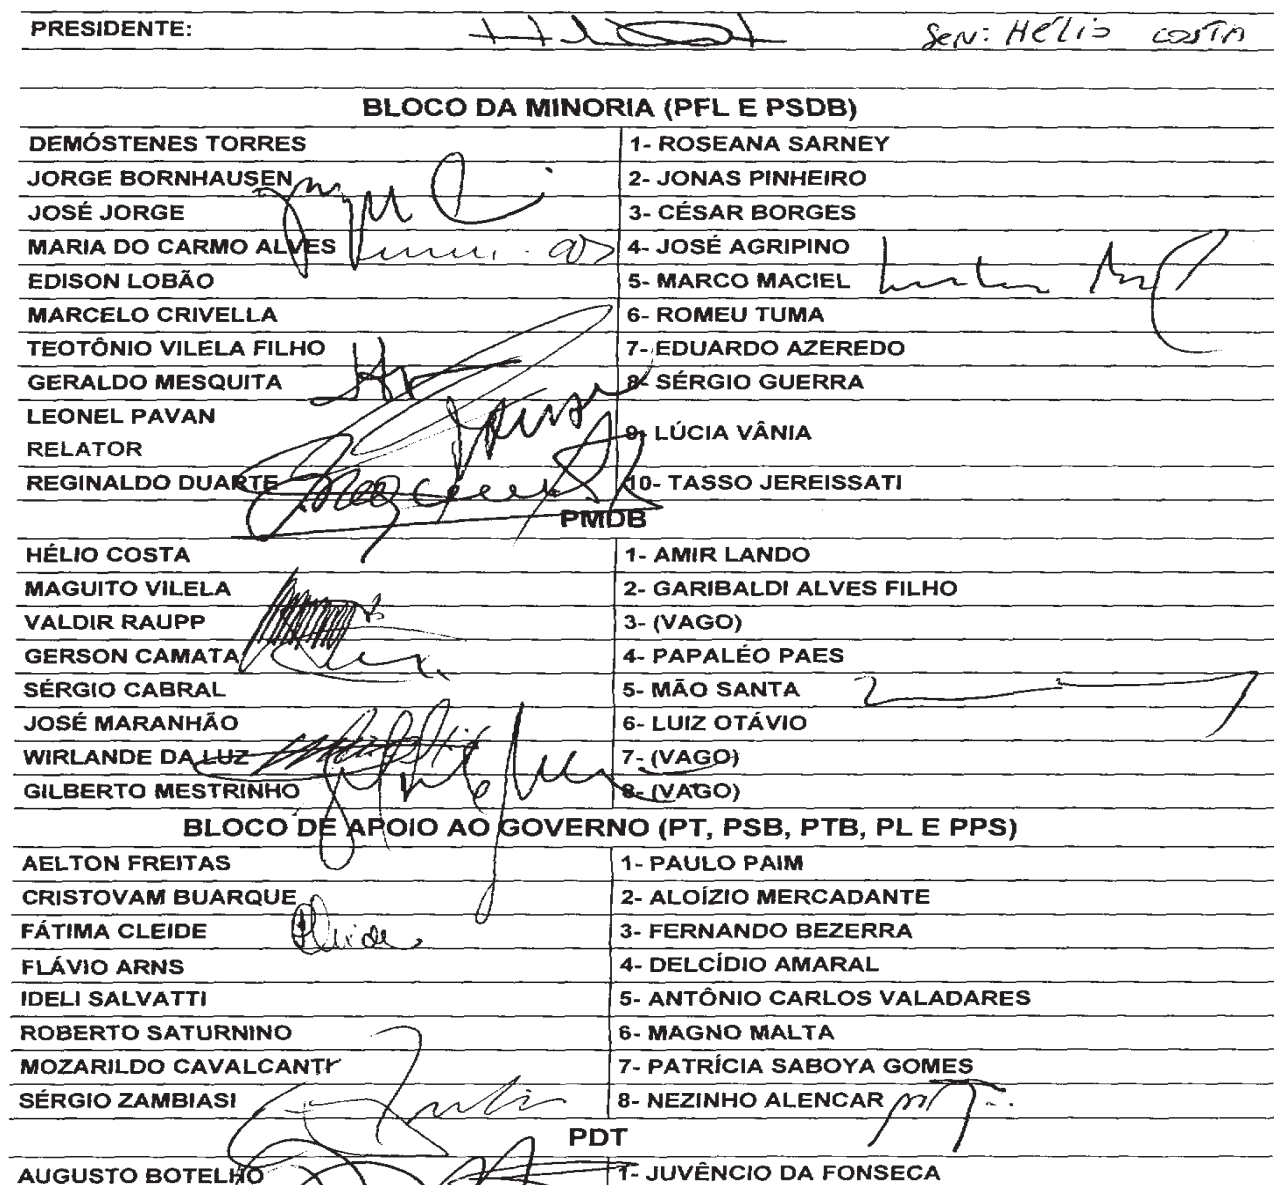 PRESIDENTE: Sen: Hélio Costa
BLOCO DA MINORIA (PFL E PSDB)
DEMÓSTENES TORRES 1- ROSEANA SARNEY
JORGE BORNHAUSEN 2- JONAS PINHEIRO
JOSÉ JORGE 3- CÉSAR BORGES
MARIA DO CARMO ALVES 4- JOSÉ AGRIPINO
EDISON LOBÃO 5- MARCO MACIEL
MARCELO CRIVELLA 6- ROMEU TUMA
TEOTÔNIO VILELA FILHO 7- EDUARDO AZEREDO
GERALDO MESQUITA 8- SÉRGIO GUERRA
LEONEL PAVAN
RELATOR 9- LÚCIA VÂNIA
REGINALDO DUARTE 10- TASSO JEREISSATI
PMDB
HÉLIO COSTA 1- AMIR LANDO
MAGUITO VILELA 2- GARIBALDI ALVES FILHO
VALDIR RAUPP 3- (VAGO)
GERSON CAMATA 4- PAPALÉO PAES
SÉRGIO CABRAL 5- MÃO SANTA
JOSÉ MARANHÃO 6- LUIZ OTÁVIO
WIRLANDE DA LUZ 7- (VAGO)
GILBERTO MESTRINHO 8- (VAGO)
BLOCO DE APOIO AO GOVERNO (PT, PSB, PTB, PL E PPS)
AELTON FREITAS 1- PAULO PAIM
CRISTOVAM BUARQUE 2- ALOÍZIO MERCADANTE
FÁTIMA CLEIDE 3- FERNANDO BEZERRA
FLÁVIO ARNS 4- DELCÍDIO AMARAL
IDELI SALVATTI 5- ANTÔNIO CARLOS VALADARES
ROBERTO SATURNINO 6- MAGNO MALTA
MOZARILDO CAVALCANTI 7- PATRÍCIA SABOYA GOMES
SÉRGIO ZAMBIASI 8- NEZINHO ALENCAR
PDT
AUGUSTO BOTELHO 1- JUVÊNCIO DA FONSECA